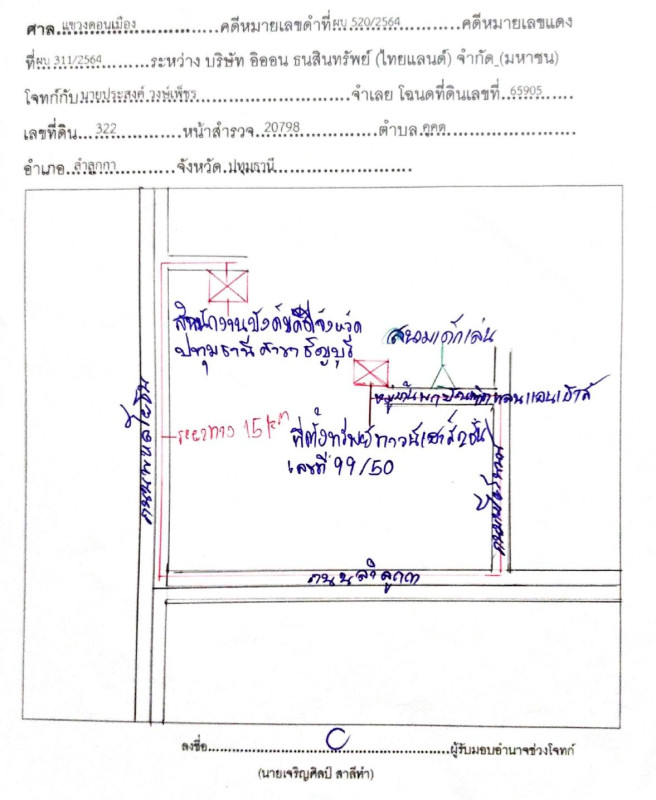 ศาล แขวงดอนเมือง คดีหมายเลขดำที่ ผบ 520/2564 คดีหมายเลขแดง
ที่ ผบ 311/2564 ระหว่าง บริษัท อิออน ธนสินทรัพย์ (ไทยแลนด์) จำกัด (มหาชน)
โจทก์กับ นายประสงค์ วงษ์เพ็ชร จำเลย โฉนดที่ดินเลขที่ 65905
เลขที่ดิน 322 หน้าสำรวจ 20798 ตำบล คูคต
อำเภอ ลำลูกกา จังหวัด ปทุมธานี
สำนักงานบังคับคดีจังหวัด
ปทุมธานี สาขา ธัญบุรี
สนามเด็กเล่น
ถนนพหลโยธิน
ระยะทาง 15 km
ที่ตั้งทรัพย์ ทาวน์เฮาส์ 2 ชั้น
เลขที่ 99/50
ถนนลำลูกกา
ลงชื่อ ผู้รับมอบอำนาจช่วงโจทก์
(นายเจริญศิลป์ สาลีทำ)